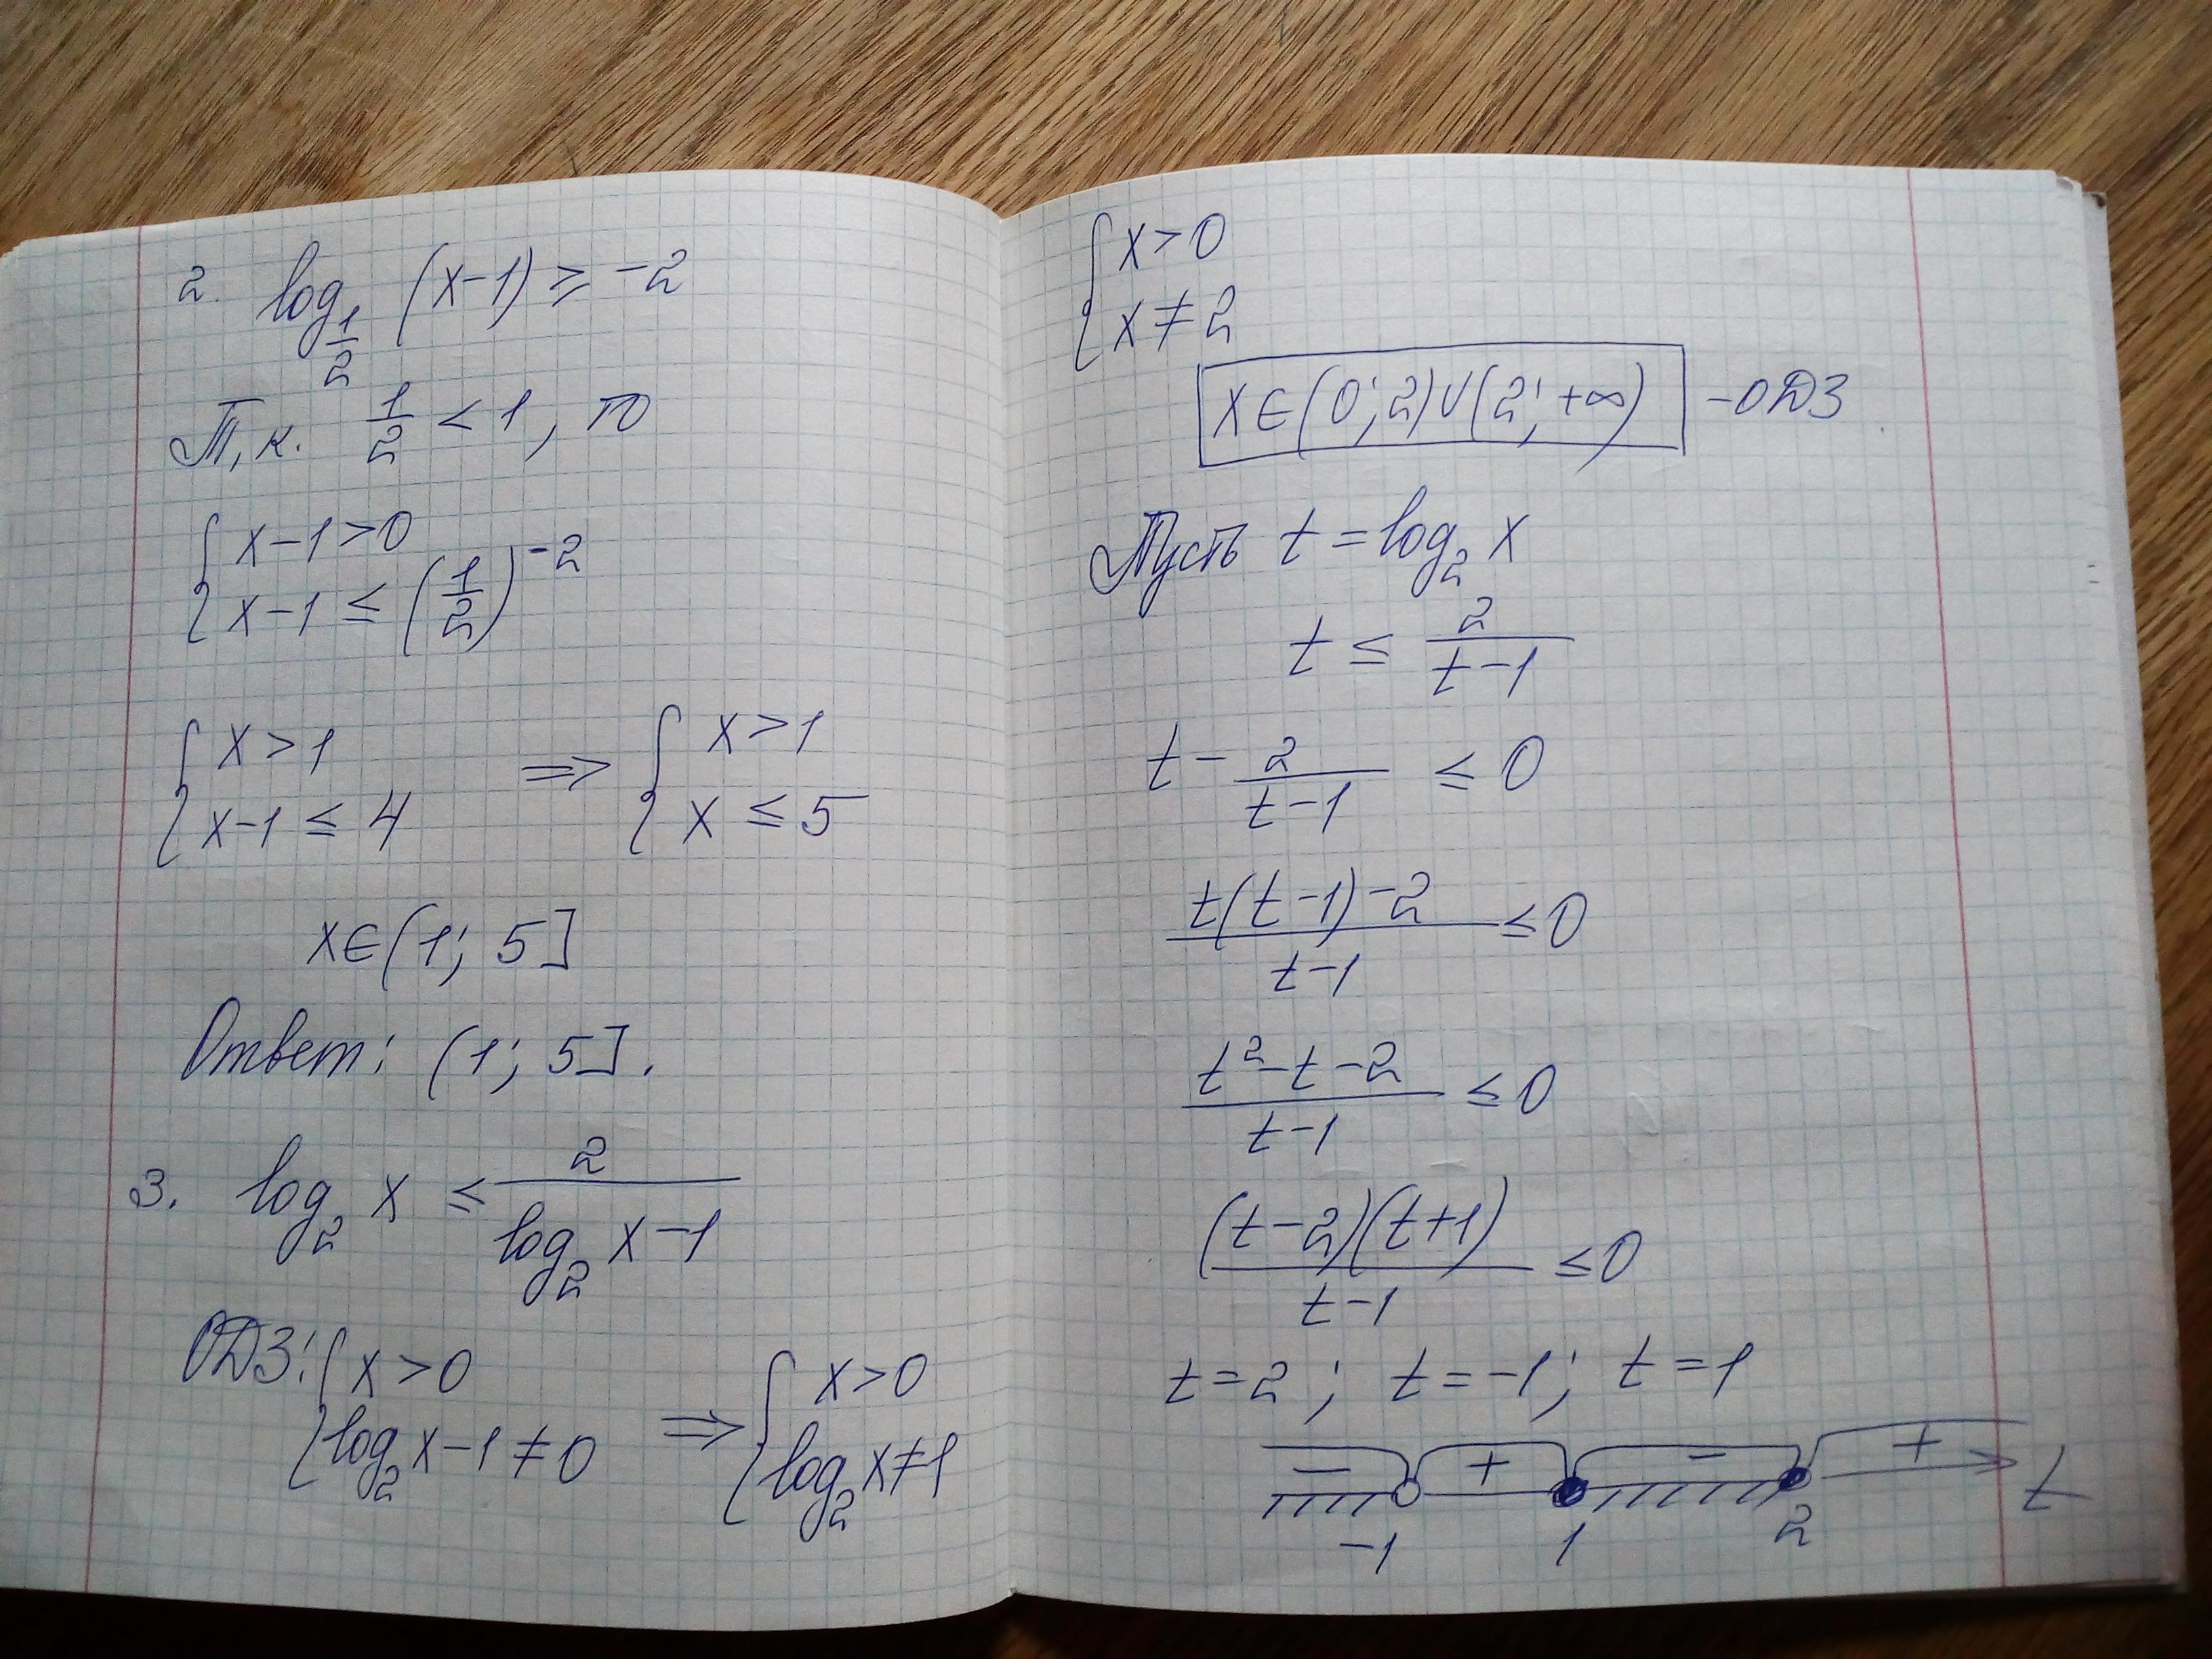 2. log_{1/2} (x-1) ≥ -2
Т.к. 1/2 < 1, то
{ x-1>0
{ x-1 ≤ (1/2)^{-2}
{ x>1 ⇒ { x>1
{ x-1 ≤ 4 { x ≤ 5
x∈(1; 5]
Ответ: (1; 5].
3. log_2 x ≤ 2/(log_2 x-1)
ОДЗ: { x>0 ⇒ { x>0
{ log_2 x-1 ≠ 0 { log_2 x≠1
{ x>0
{ x≠2
x∈(0; 2)∪(2; +∞) -ОДЗ
Пусть t = log_2 x
t ≤ 2/(t-1)
t - 2/(t-1) ≤ 0
(t(t-1)-2)/(t-1) ≤ 0
(t^2-t-2)/(t-1) ≤ 0
((t-2)(t+1))/(t-1) ≤ 0
t=2; t=-1; t=1
- + - +
-1 1 2 t